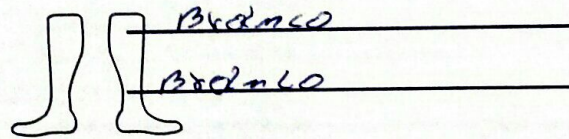 Branco
Branco